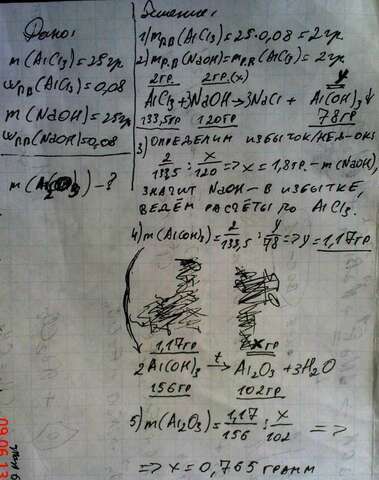 Дано:
m(AlCl3)=25гр.
ωпв(AlCl3)=0,08
m(NaOH)=25гр
ωпв(NaOH)=0,08
m(Al2O3)-?
Решение:
1) mр.в(AlCl3)=25·0,08=2гр.
2) mр.в(NaOH)=mр.в(AlCl3)=2гр.
2гр. 2гр.(x) y
AlCl3+3NaOH→3NaCl+Al(OH)3↓
133,5гр 120гр 78гр
3) Определим избыток/нед-ок:
2/133,5 : x/120 => x=1,8гр.-m(NaOH),
значит NaOH-в избытке,
ведём расчёты по AlCl3.
4) m(Al(OH)3)=2/133,5 : y/78 => y=1,17гр
1,17гр xгр
2Al(OH)3 t→ Al2O3+3H2O
156гр 102гр
5) m(Al2O3)=1,17/156 : x/102 =>
=> x=0,765 грамм
09.06.13